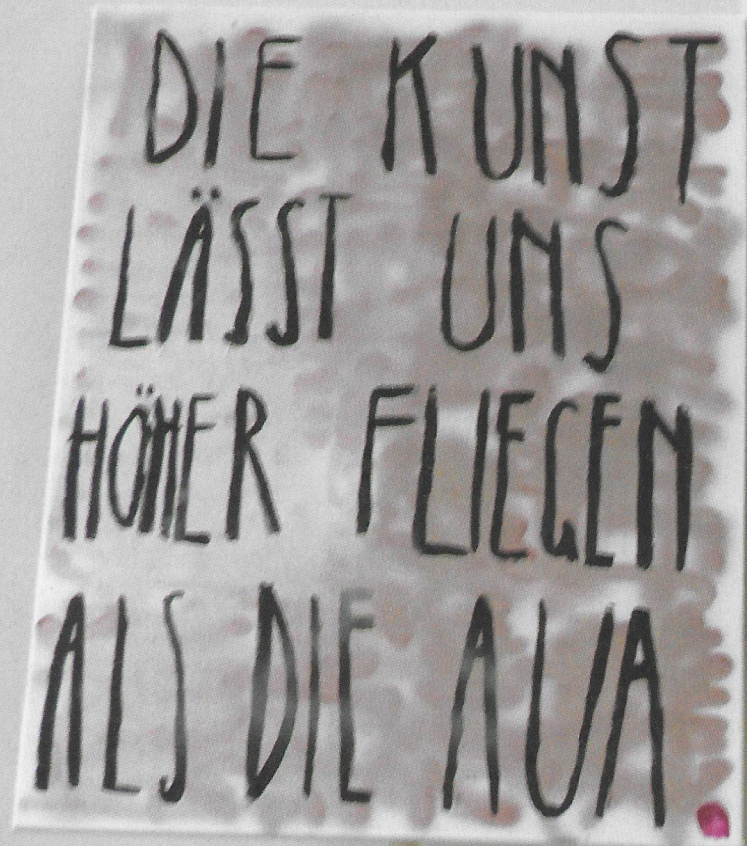 DIE KUNST
LÄSST UNS
HÖHER FLIEGEN
ALS DIE AUA